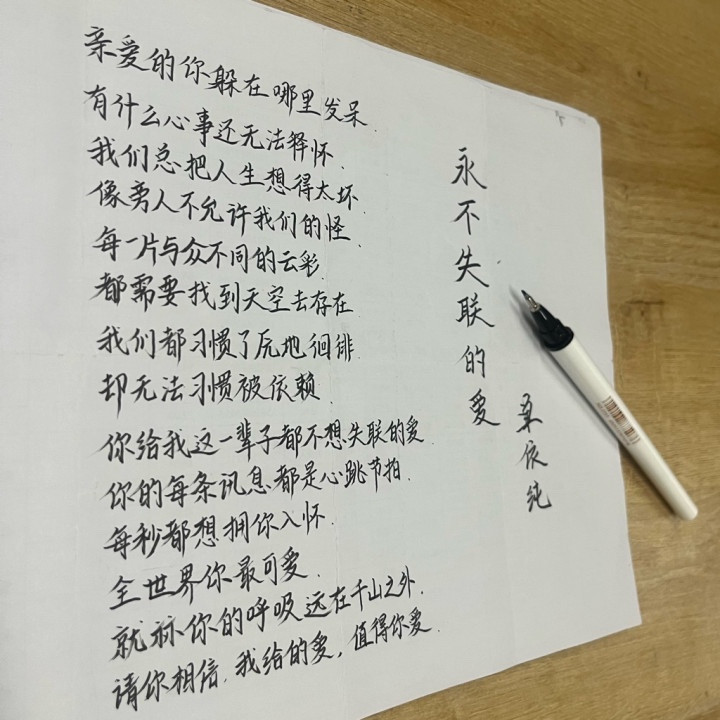 亲爱的你躲在哪里发呆.
有什么心事还无法释怀.
我们总把人生想得太坏.
像旁人不允许我们的怪.
每一片与众不同的云彩.
都需要找到天空去存在
我们都习惯了原地徊徘.
却无法习惯被依赖.
你给我这一辈子都不想失联的爱.
你的每条讯息都是心跳节拍.
每秒都想拥你入怀.
全世界你最可爱.
就称你的呼吸远在千山之外.
请你相信.我给的爱,值得你爱.
永不失联的爱
单依纯